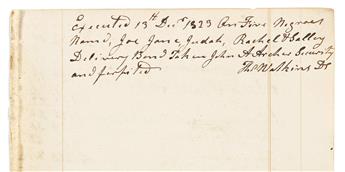 Executed 13th Decr 1823 On Five Negroes
Named, Joe Jane, Judah, Rachel & Salley
Delivery Bond Taken John A Archer Security
and forfeited Thos Watkins DS